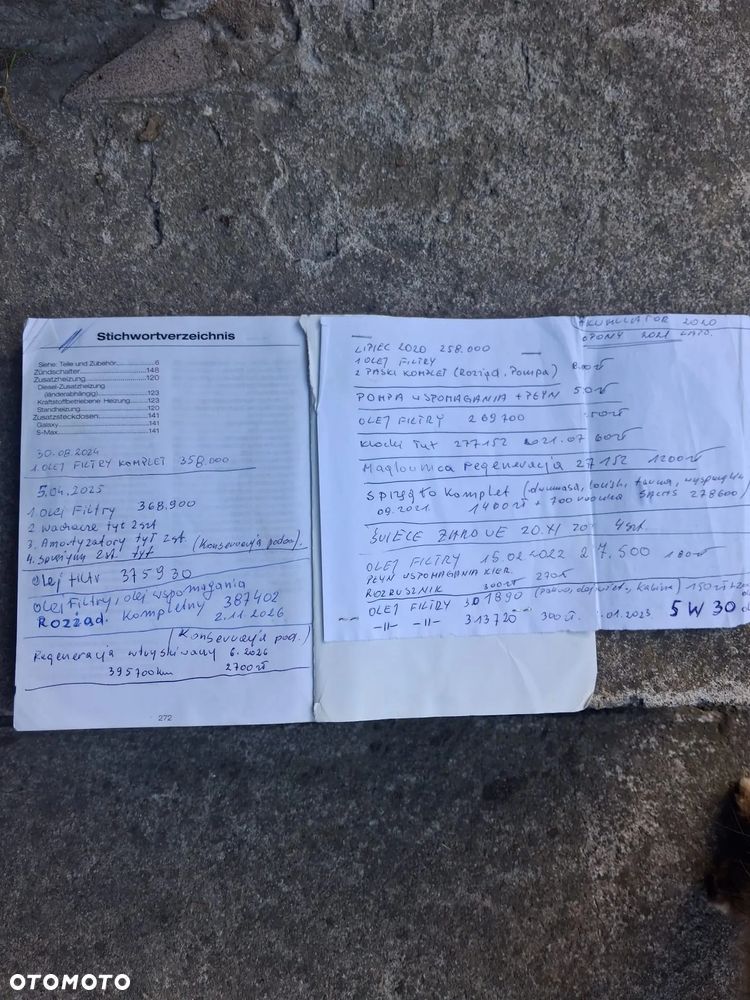 Stichwortverzeichnis
Siehe: Teile und Zubehör 6
Zündschalter 148
Zusatzheizung 120
Diesel-Zusatzheizung
(länderabhängig) 123
Kraftstoffbetriebene Heizung 123
Standheizung 120
Zusatzsteckdosen 141
Galaxy 141
S-Max 141
30.08.2024
1 OLEJ FILTRY KOMPLET 358.000
5.04.2025
1. Olej Filtry 368.900
2. Wachacze tył 2szt
3. Amortyzatory tył 2szt.
4. Sprężyny 2szt. tył (Konserwacja podwo).
Olej filtr 375930
Olej Filtry, olej wspomagania
Rozżąd. Kompletny 387402
2.11.2026
(Konserwacja pod.)
Regeneracja wtryskiwaczy 6.2026
395700km 2700zł
272
AKUMULATOR 2020
OPONY 2021 LATO
LIPIEC 2020 258.000
1 OLEJ FILTRY
2 PASKI KOMPLET (Rozżąd, Pompa)
POMPA WSPOMAGANIA + PŁYN
OLEJ FILTRY 269700
Klocki Tył 277152 2021.07 600zł
Maglownica regeneracja 1200zł
Spżęgło Komplet
09.2021. 1400zł + 700 SACHS 278600)
ŚWIECE ŻAROWE 20.XI 4szt.
OLEJ FILTRY 15.02.2022
PŁYN WSPOMAGANIA KIER.
ROZRUSZNIK 300zł 270zł
OLEJ FILTRY 301890
-ıı- -ıı- 313720 300zł .01.2023 5W30
OTOMOTO